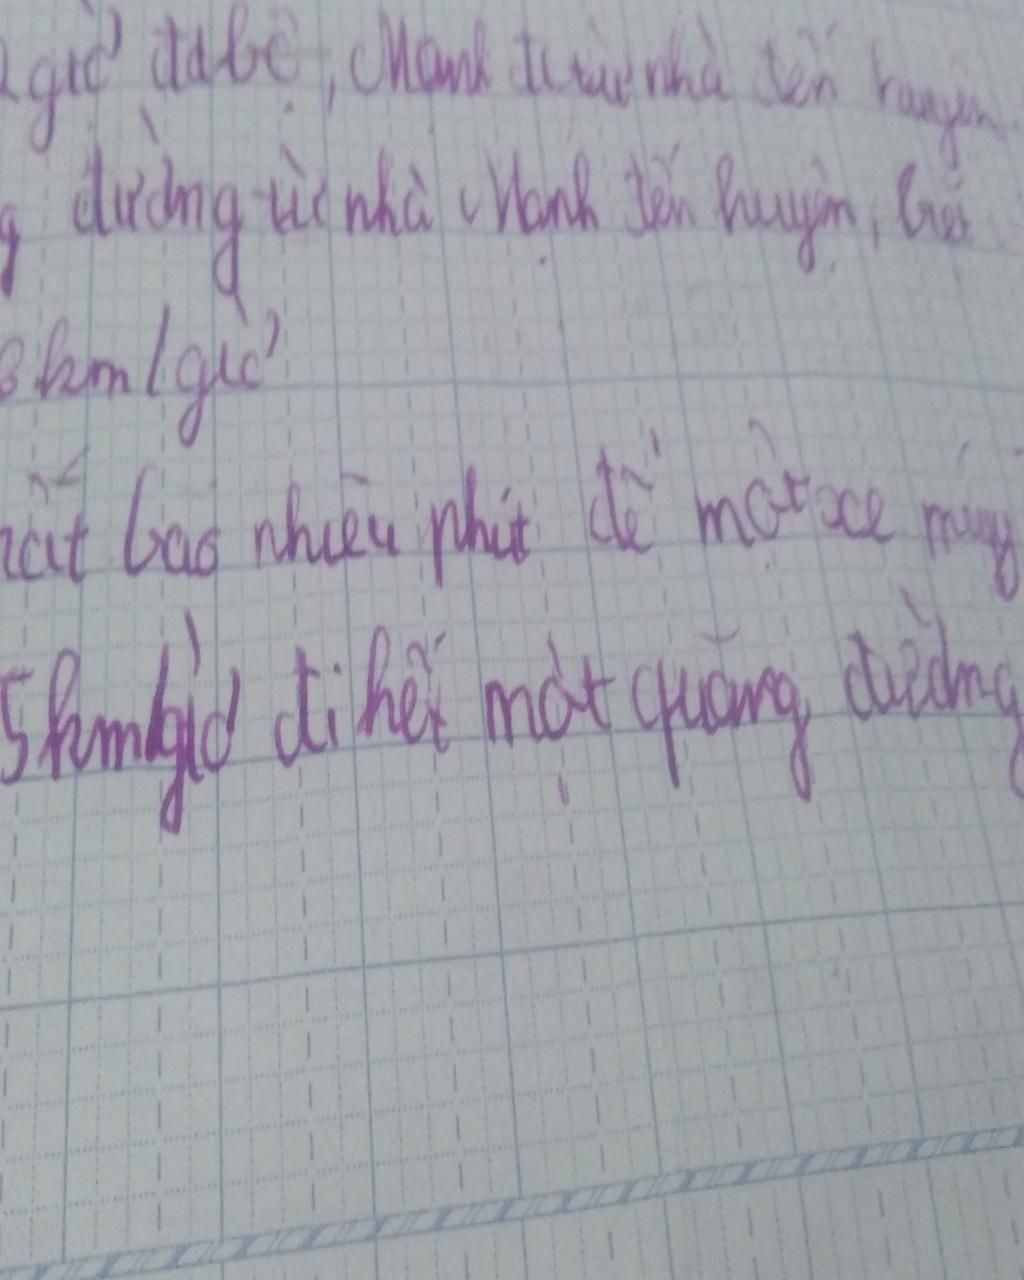 giờ đi bộ, Mạnh đi từ nhà đến huyện.
đường từ nhà Mạnh đến huyện, biết
km/giờ
mất bao nhiêu phút để một xe máy
5km/giờ đi hết một quãng đường